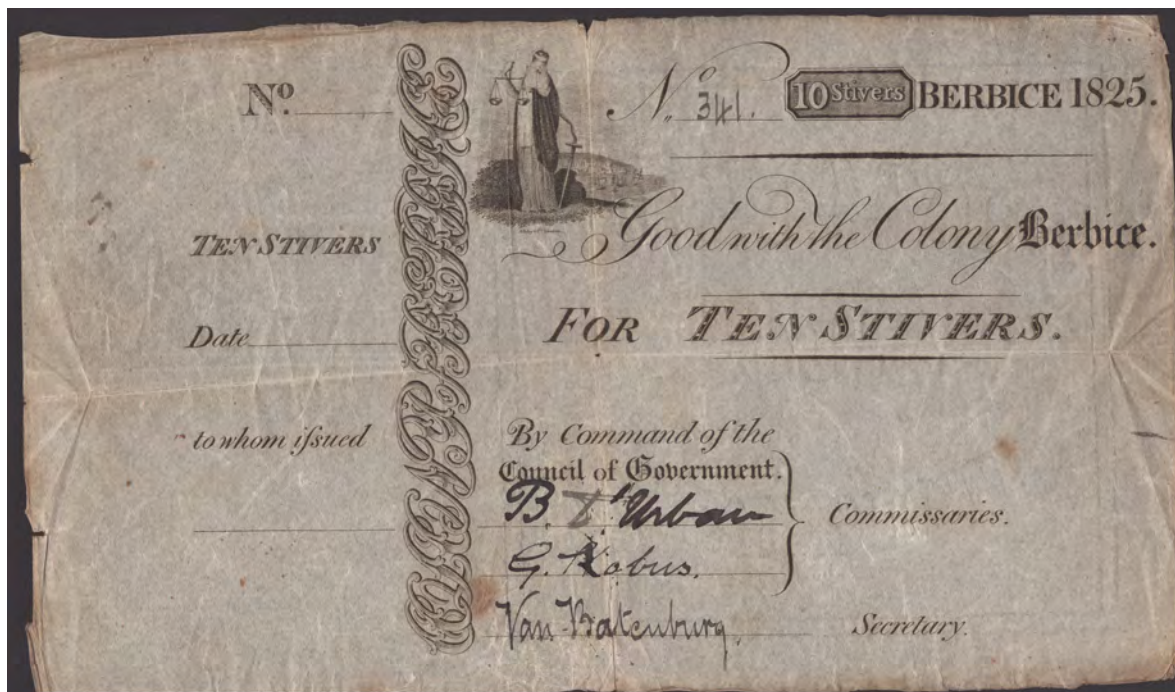 No.
TEN STIVERS
Date
to whom ifsued
No. 341. 10 Stivers BERBICE 1825.
Good with the Colony Berbice.
FOR TEN STIVERS.
By Command of the
Council of Government.
B. d'Urban
G. Kobus.
Commissaries.
Van Batenburg. Secretary.